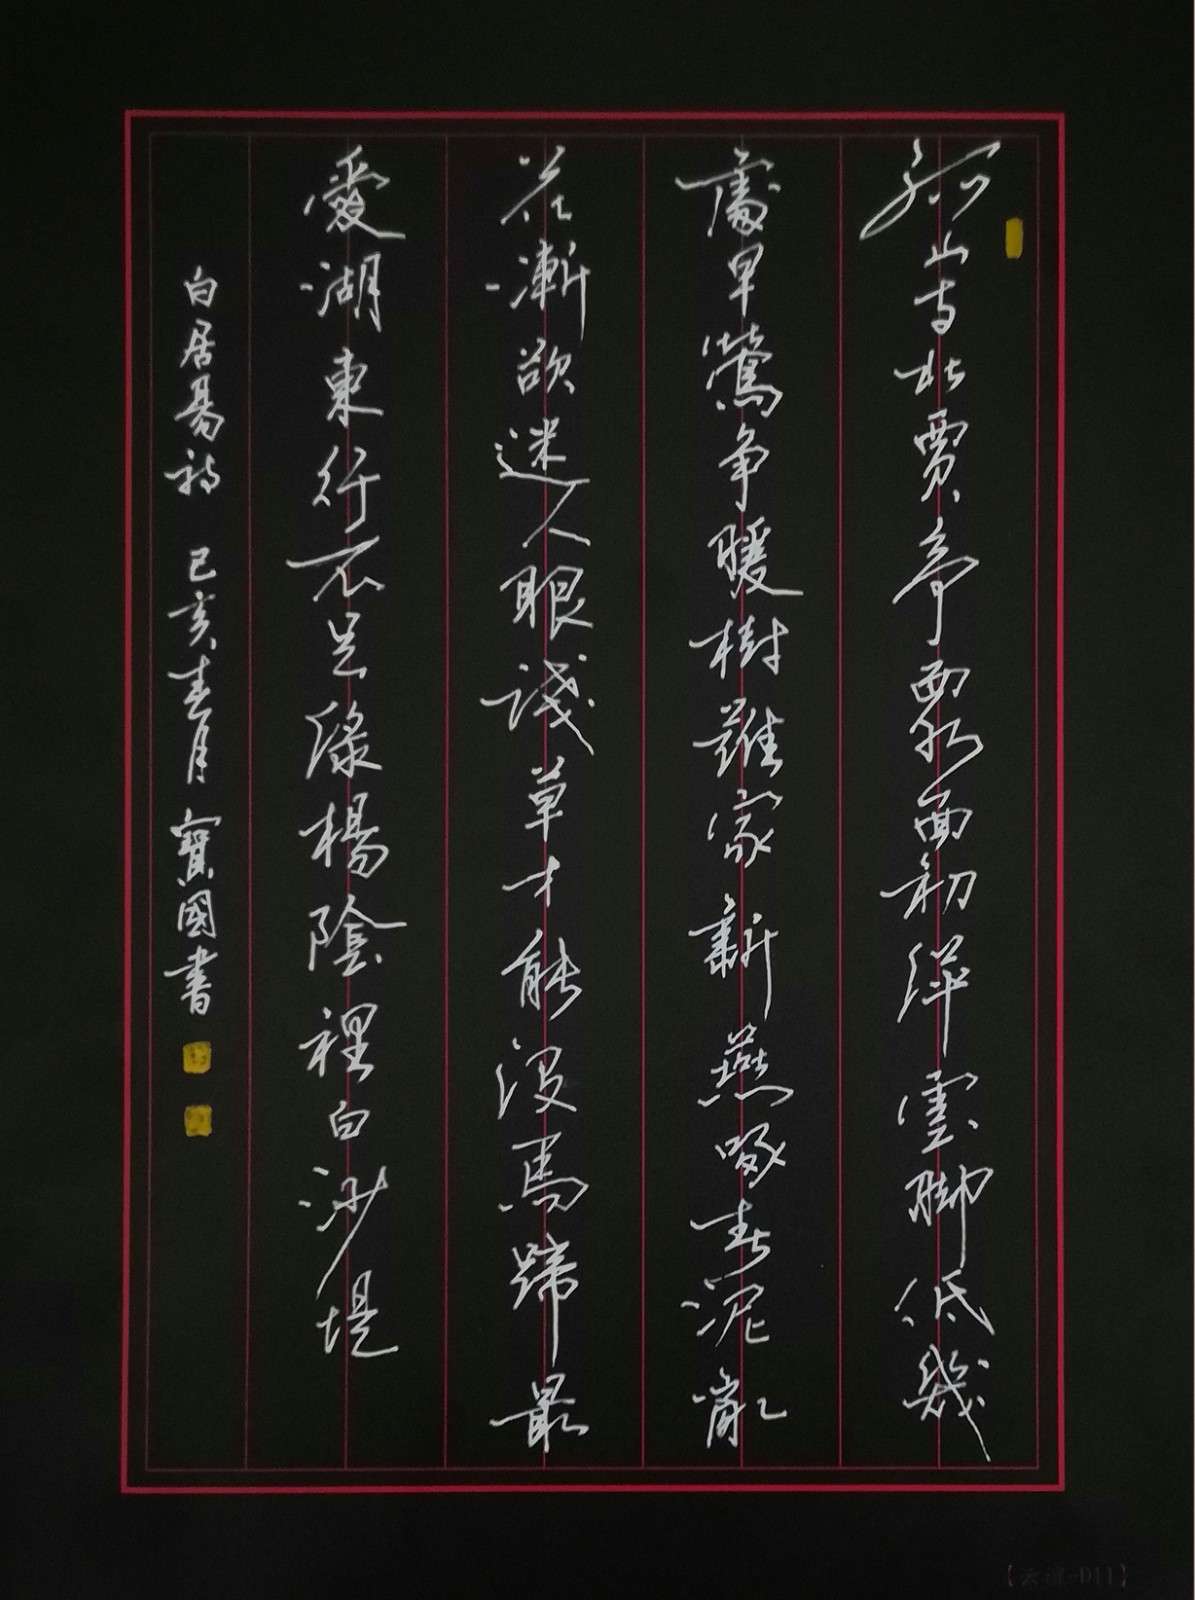 孤山寺北賈亭西水面初平雲脚低幾
處早鶯争暖樹誰家新燕啄春泥亂
花漸欲迷人眼淺草才能没馬蹄最
愛湖東行不足綠楊陰裡白沙堤
白居易詩 己亥春月 寶國書